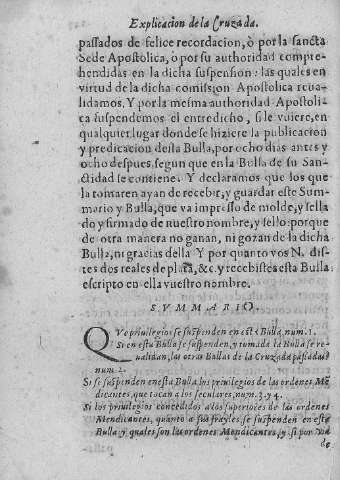 Explicacion de la Cruzada.
passados de felice recordacion, ò por la sancta
Sede Apostolica, ò por su authoridad compre-
hendidas en la dicha suspension: las quales en
virtud de la dicha comission Apostolica reua-
lidamos. Y por la mesma authoridad Apostoli-
ca suspendemos el entredicho, si le vuiere, en
qualquier lugar donde se hiziere la publicacion
y predicacion desta Bulla, por ocho dias antes y
ocho despues, segun que en la Bulla de su San-
ctidad se contiene. Y declaramos que los que
la tomaren ayan de recebir, y guardar este Sum-
mario y Bulla, que va impresso de molde, y sella
do y firmado de nuestro nombre, y sello: porque
de otra manera no ganan, ni gozan de la dicha
Bulla, ni gracias della Y por quanto vos N. dis-
tes dos reales de plata, &c. y recebistes esta Bulla
escripto en ella vuestro nombre.
SVMMARIO.
QVe priuilegios se suspenden en esta Bulla, num. 1.
Si en esta Bulla se suspenden, y tomada la Bulla se re-
ualidan, las otras Bullas de la Cruzada passadas
num. 2.
Si se suspenden en esta Bulla, los priuilegios de las ordenes Mẽ
dicantes, que tocan a los seculares, num. 3. y 4.
Si los priuilegios concedidos a los superiores de las ordenes
Mendicantes, quanto a sus frayles se suspenden en esta
Bulla y quales son las ordenes Mendicantes, y si por
de